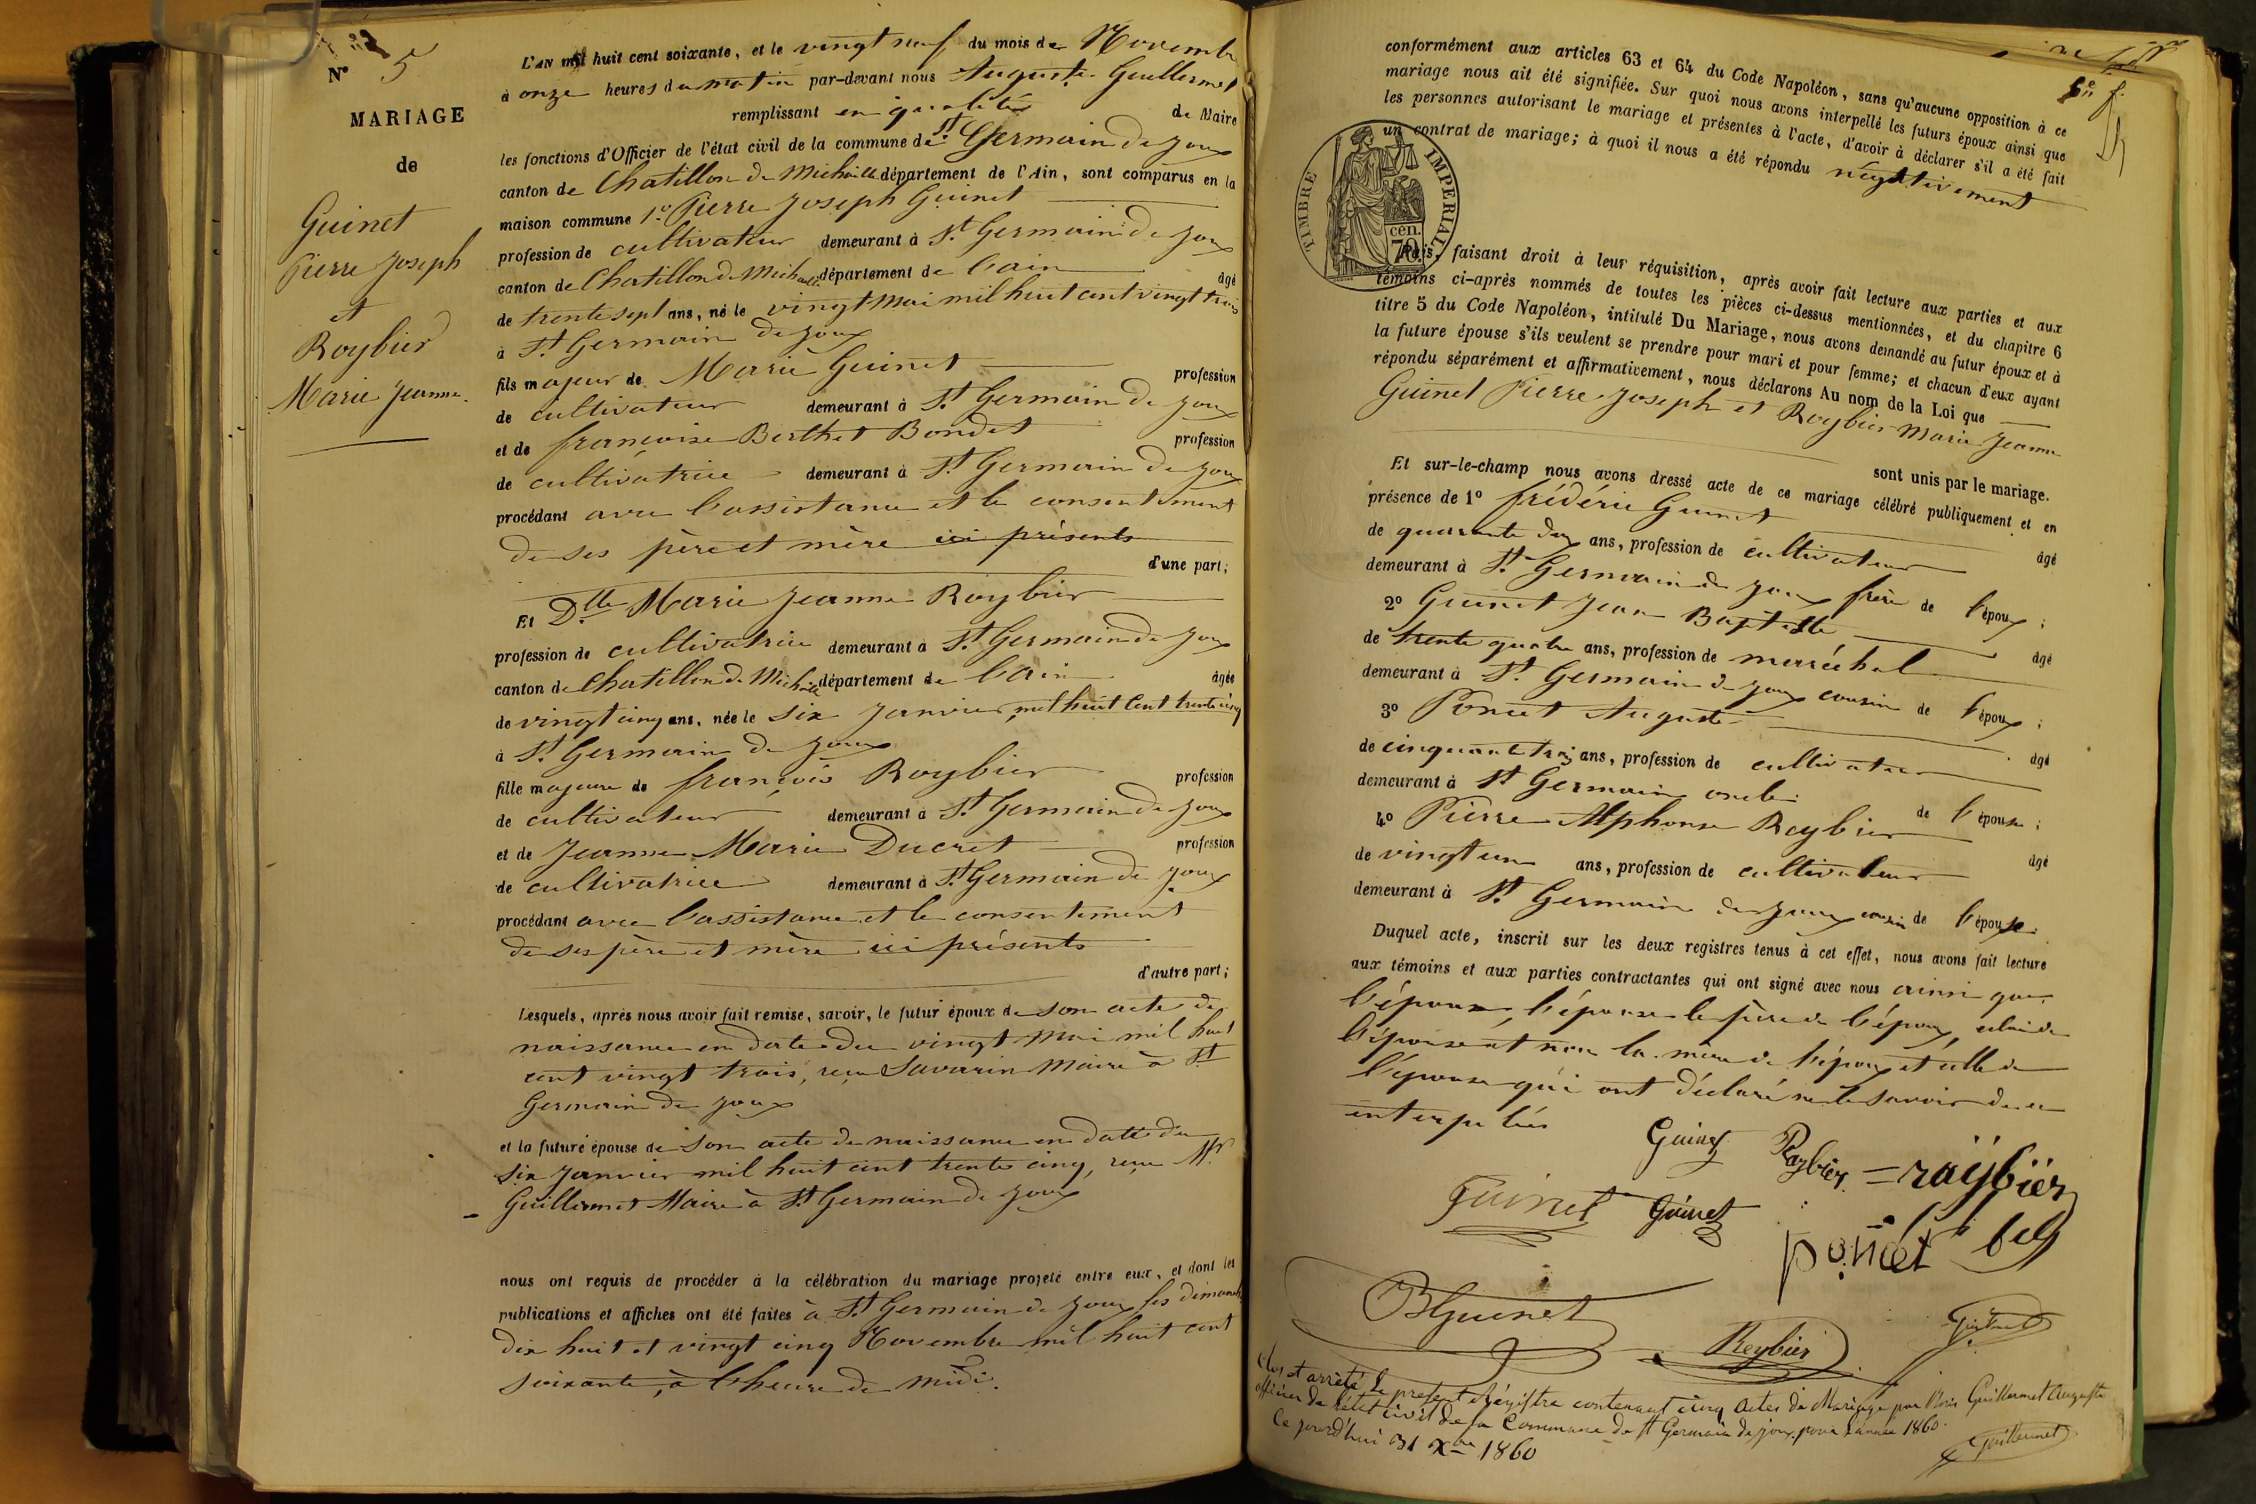 N° 5
MARIAGE
de
Guinet
Pierre Joseph
et
Roybier
Marie Jeanne.
L'AN mil huit cent soixante, et le vingt neuf du mois de Novembre
à onze heures du matin par-devant nous Auguste Guillermet
remplissant en qualité de Maire
les fonctions d'Officier de l'état civil de la commune de St Germain de Joux
canton de Chatillon de Michaille département de l'Ain, sont comparus en la
maison commune 1° Pierre Joseph Guinet
profession de cultivateur demeurant à St Germain de Joux
canton de Chatillon de Michaille département de l'ain âgé
de trente sept ans, né le vingt mai mil huit cent vingt trois
à St Germain de Joux
fils majeur de Marie Guinet profession
de cultivateur demeurant à St Germain de Joux
et de françoise Berthet Bondet profession
de cultivatrice demeurant à St Germain de Joux
procédant avec l'assistance et le consentement
de ses père et mère ici présents
d'une part;
Et Dlle Marie Jeanne Roybier
profession de cultivatrice demeurant à St Germain de Joux
canton de Chatillon de Michaille département de l'Ain âgée
de vingt cinq ans, née le six janvier mil huit cent trente cinq
à St Germain de Joux
fille majeure de françois Roybier profession
de cultivateur demeurant à St Germain de Joux
et de Jeanne Marie Ducret profession
de cultivatrice demeurant à St Germain de Joux
procédant avec l'assistance et le consentement
de ses père et mère ici présents
d'autre part;
Lesquels, après nous avoir fait remise, savoir, le futur époux de son acte de
naissance en date du vingt mai mil huit
cent vingt trois, reçu Savarin Maire à St
Germain de Joux
et la future épouse de son acte de naissance en datte du
six janvier mil huit cent trente cinq, reçu Mr
Guillermet Maire à St Germain de Joux
nous ont requis de procéder à la célébration du mariage projeté entre eux, et dont les
publications et affiches ont été faites à St Germain de Joux les dimanches
dix huit et vingt cinq Novembre mil huit cent
soixante, à l'heure de midi.
conformément aux articles 63 et 64 du Code Napoléon, sans qu'aucune opposition à ce
mariage nous ait été signifiée. Sur quoi nous avons interpellé les futurs époux ainsi que
les personnes autorisant le mariage et présentes à l'acte, d'avoir à déclarer s'il a été fait
un contrat de mariage; à quoi il nous a été répondu négativement
TIMBRE IMPERIAL
70 cen.
Puis, faisant droit à leur réquisition, après avoir fait lecture aux parties et aux
témoins ci-après nommés de toutes les pièces ci-dessus mentionnées, et du chapitre 6
titre 5 du Code Napoléon, intitulé Du Mariage, nous avons demandé au futur époux et à
la future épouse s'ils veulent se prendre pour mari et pour femme; et chacun d'eux ayant
répondu séparément et affirmativement, nous déclarons Au nom de la Loi que
Guinet Pierre Joseph et Roybier Marie Jeanne
sont unis par le mariage.
Et sur-le-champ nous avons dressé acte de ce mariage célébré publiquement et en
présence de 1° frédéric Guinet âgé
de quarante deux ans, profession de cultivateur
demeurant à St Germain de Joux frère de l'époux;
2° Guinet Jean Baptiste âgé
de trente quatre ans, profession de maréchal
demeurant à St Germain de Joux cousin de l'époux;
3° Poncet Auguste âgé
de cinquante trois ans, profession de cultivateur
demeurant à St Germain oncle de l'épouse;
4° Pierre Alphonse Roybier âgé
de vingt un ans, profession de cultivateur
demeurant à St Germain de Joux cousin de l'épouse.
Duquel acte, inscrit sur les deux registres tenus à cet effet, nous avons fait lecture
aux témoins et aux parties contractantes qui ont signé avec nous ainsi que
l'époux, l'épouse le père de l'époux, celui de
l'épouse et non la mère de l'époux et celle de
l'épouse qui ont déclaré ne le savoir de ce
interpelées
Guinet Raybier =raÿbiër
Guinet Guinet
poncet
BGuinet
Reybier
Clos et arrêté le présent Régistre contenant cinq actes de Mariage par Nous Guillermet Auguste
officier de l'état civil de la Commune de St Germain de joux pour l'année 1860.
Ce jourd'hui 31 Xbre 1860
Guillermet